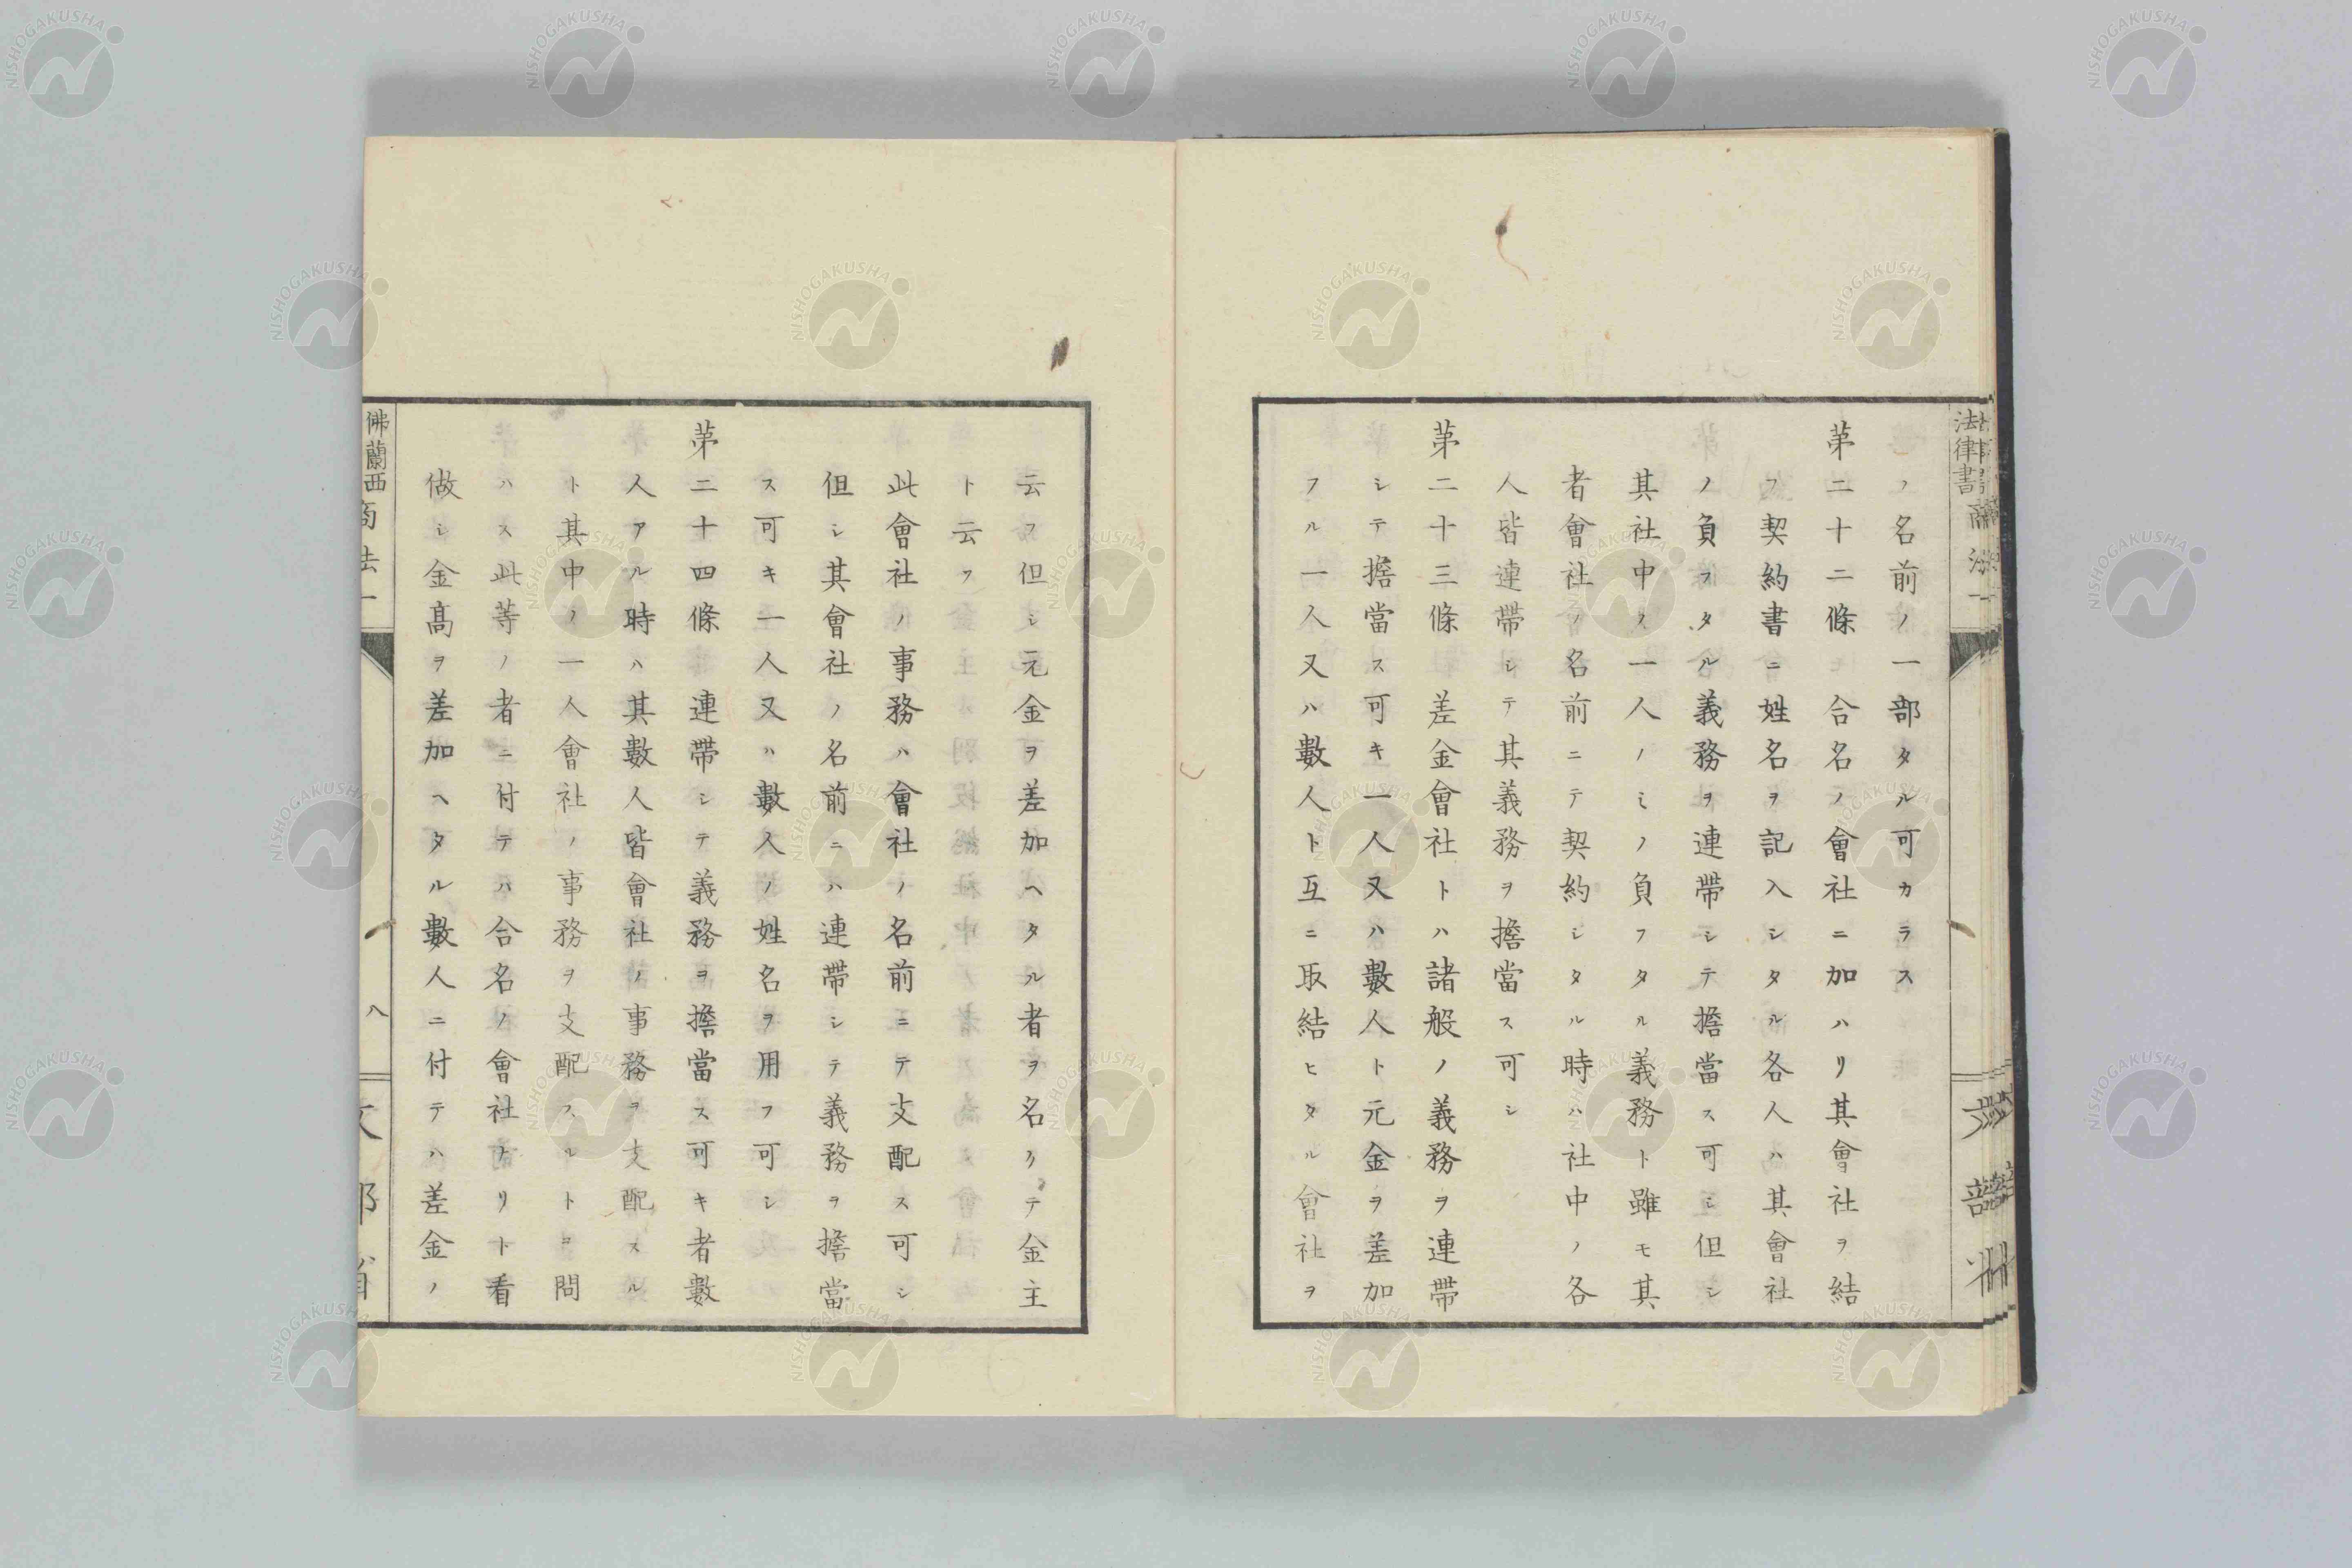 ノ名前ノ一部タル可カラス
第二十二條 合名ノ會社ニ加ハリ其會社ヲ結
フ契約書ニ姓名ヲ記入シタル各人ハ其會社
ノ負フタル義務ヲ連帶シテ擔當ス可シ但シ
其社中ノ一人ノミノ負フタル義務ト雖モ其
者會社ノ名前ニテ契約シタル時ハ社中ノ各
人皆連帶シテ其義務ヲ擔當ス可シ
第二十三條 差金會社トハ諸般ノ義務ヲ連帶
シテ擔當ス可キ一人又ハ數人ト元金ヲ差加
フル一人又ハ數人ト互ニ取結ヒタル會社ヲ
云フ但シ元金ヲ差加ヘタル者ヲ名ケテ金主
ト云フ
此會社ノ事務ハ會社ノ名前ニテ支配ス可シ
但シ其會社ノ名前ニハ連帶シテ義務ヲ擔當
ス可キ一人又ハ數人ノ姓名ヲ用フ可シ
第二十四條 連帶シテ義務ヲ擔當ス可キ者數
人アル時ハ其數人皆會社ノ事務ヲ支配スル
ト其中ノ一人會社ノ事務ヲ支配スルトヲ問
ハス此等ノ者ニ付テハ合名ノ會社ナリト看
做シ金高ヲ差加ヘタル數人ニ付テハ差金ノ
佛蘭西
法律書
商法一
八
文部省
NISHOGAKUSHA